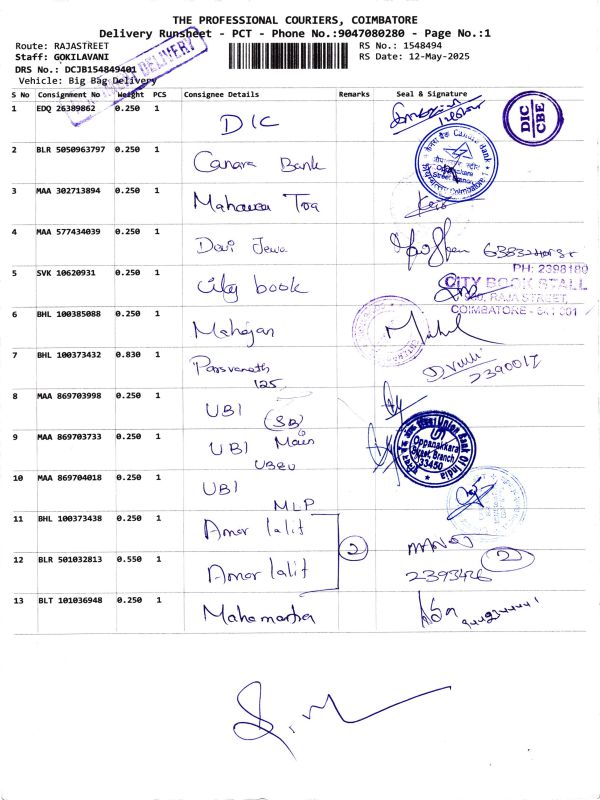 THE PROFESSIONAL COURIERS, COIMBATORE
Delivery Runsheet - PCT - Phone No.:9047080280 - Page No.:1
Route: RAJASTREET
RS No.: 1548494
Staff: GOKILAVANI
RS Date: 12-May-2025
DRS No.: DCJB154849401
Vehicle: Big Bag Delivery
DELIVERY
S No Consignment No Weight PCS Consignee Details Remarks Seal & Signature
1 EDQ 26389862 0.250 1 DIC
DIC
CBE
2 BLR 5050963797 0.250 1 Canara Bank
Canara Bank
Oppanakara
Street Branch
Coimbatore 1
3 MAA 302713894 0.250 1
4 MAA 577434039 0.250 1 Devi Jewa
5 SVK 10620931 0.250 1 City book
PH: 2398180
CITY BOOK STALL
RAJA STREET,
COIMBATORE - 641 001
6 BHL 100385088 0.250 1 Mahajan
7 BHL 100373432 0.830 1 Parsvanath
125
2390017
8 MAA 869703998 0.250 1 UBI
(SB)
9 MAA 869703733 0.250 1 UBI Main
Union Bank Of India
Oppanakkara
Street, Branch
33450
10 MAA 869704018 0.250 1 UBI
MLP
11 BHL 100373438 0.250 1 Amar lalit
2
12 BLR 501032813 0.550 1 Amar lalit
2393426
2
13 BLT 101036948 0.250 1